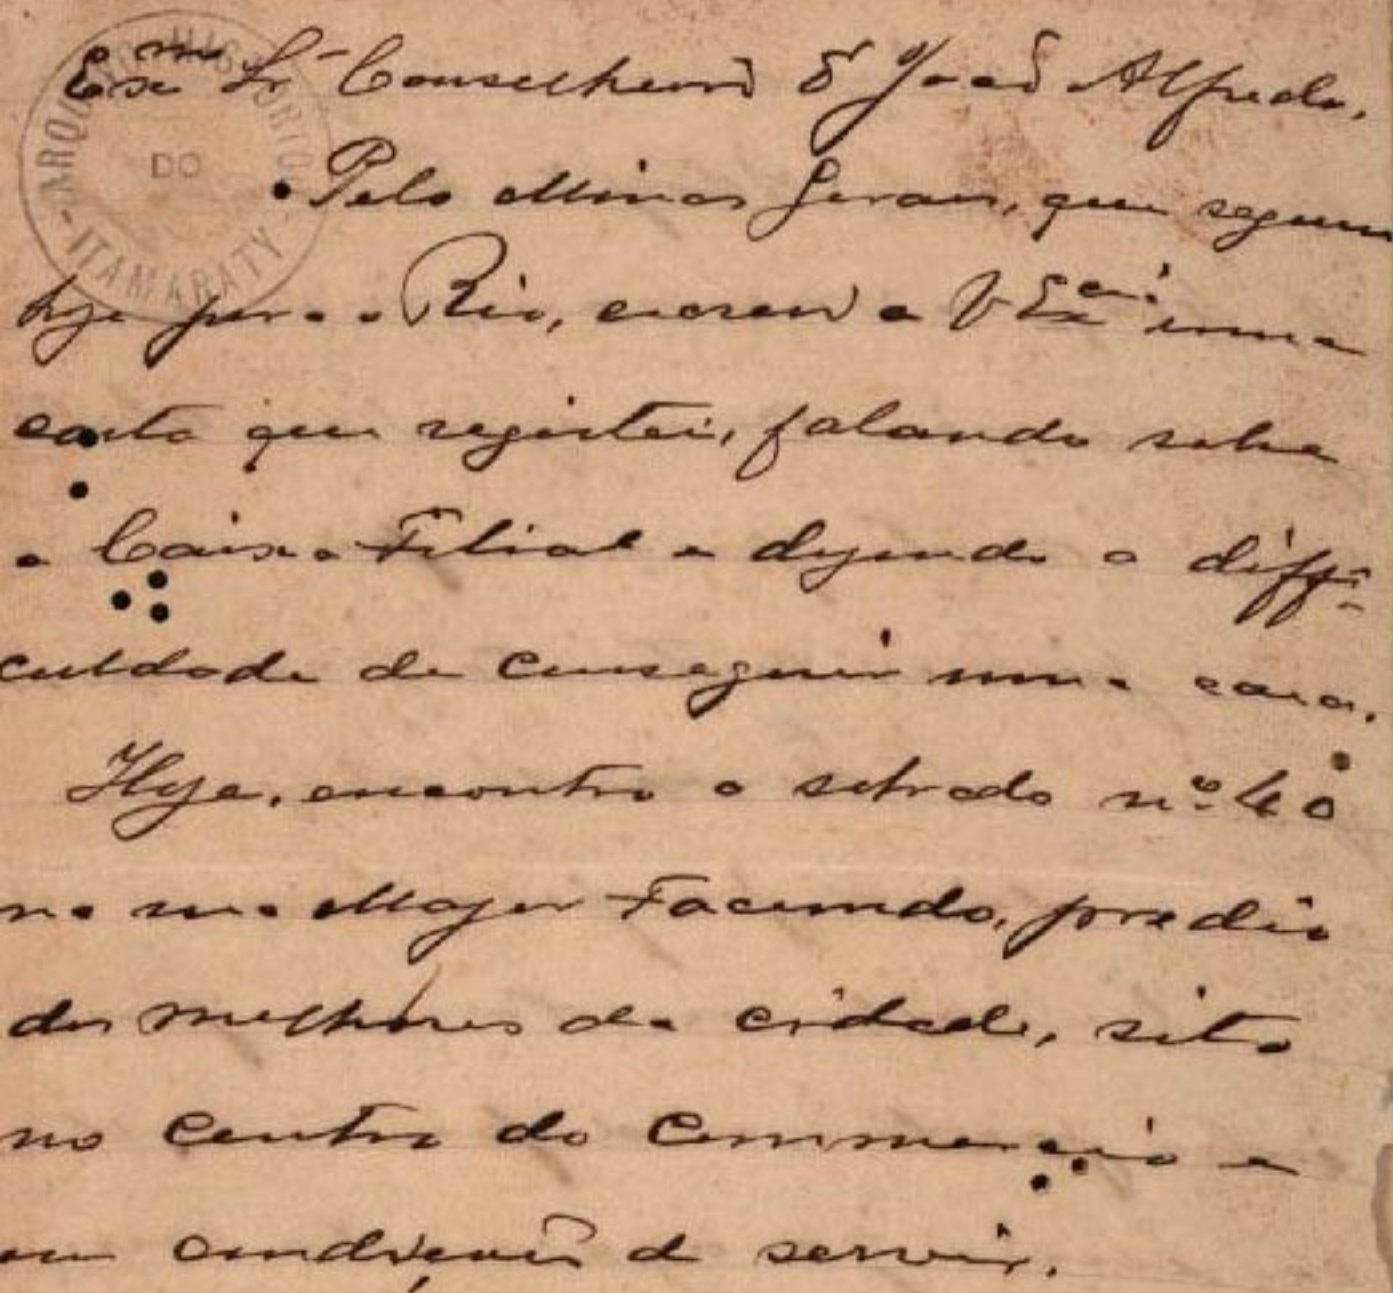 Exmo Sr Conselheiro Dr João Alfredo,
ARQUIVO HISTORICO DO ITAMARATY
Pelo Minas Geraes, que seguiu
hoje para o Rio, escrevi a V Excia uma
carta que registei, falando sobre
a Caixa Filial e dizendo a diffi-
culdade de conseguir uma casa.
Hoje, encontro o sobrado nº 40
na rua Major Facundo, predio
dos melhores da cidade, sito
no centro do commercio e
em condições de servir.